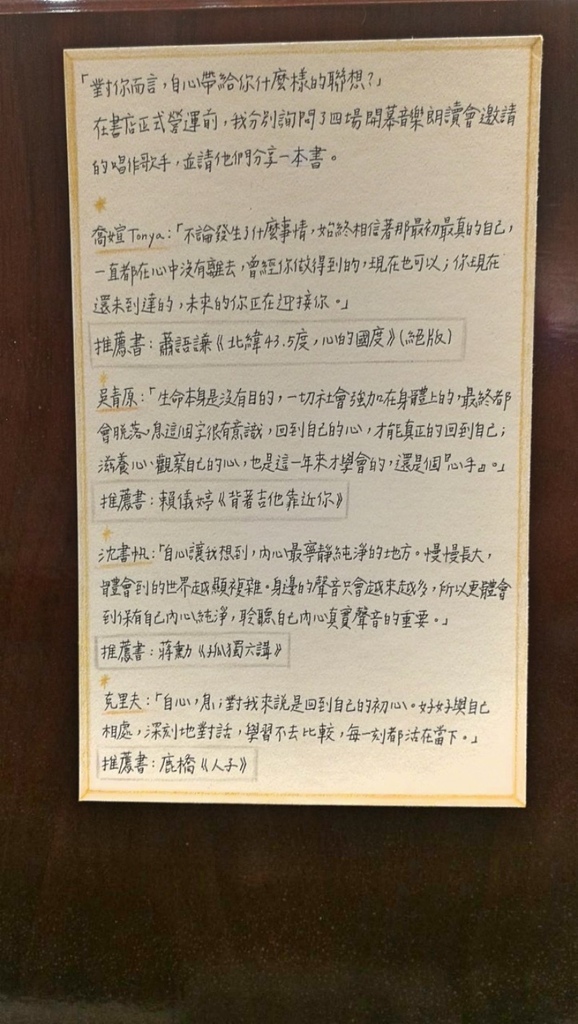 「對你而言，自心帶給你什麼樣的聯想？」
在書店正式營運前，我分別詢問了四場開幕音樂朗讀會邀請
的唱作歌手，並請他們分享一本書。
喬喧Tonya：「不論發生了什麼事情，始終相信著那最初最真的自己，
一直都在心中沒有離去，曾經你做得到的，現在也可以；你現在
還未到達的，未來的你正在迎接你。」
推薦書：蕭語謙《北緯43.5度，心的國度》(絕版)
吳青原：「生命本身是沒有目的，一切社會強加在身體上的，最終都
會脫落，息這個字很有意識，回到自己的心，才能真正的回到自己；
滋養心、觀察自己的心，也是這一年來才學會的，還是個『心手』。」
推薦書：賴儀婷《背著吉他靠近你》
沈書帆：「自心讓我想到，內心最寧靜純淨的地方。慢慢長大，
體會到的世界越顯複雜。身邊的聲音只會越來越多，所以更體會
到保有自己內心純淨，聆聽自己內心真實聲音的重要。」
推薦書：蔣勳《孤獨六講》
克里夫：「自心，息；對我來說是回到自己的初心。好好與自己
相處，深刻地對話，學習不去比較，每一刻都活在當下。」
推薦書：鹿橋《人子》